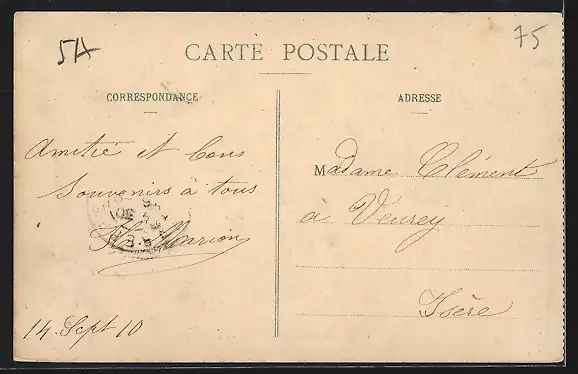 54
75
CARTE POSTALE
CORRESPONDANCE
ADRESSE
Amitié et bons
Souvenirs à tous
Marion
14 Sept 10
Madame Clément
à Veurey
Isère